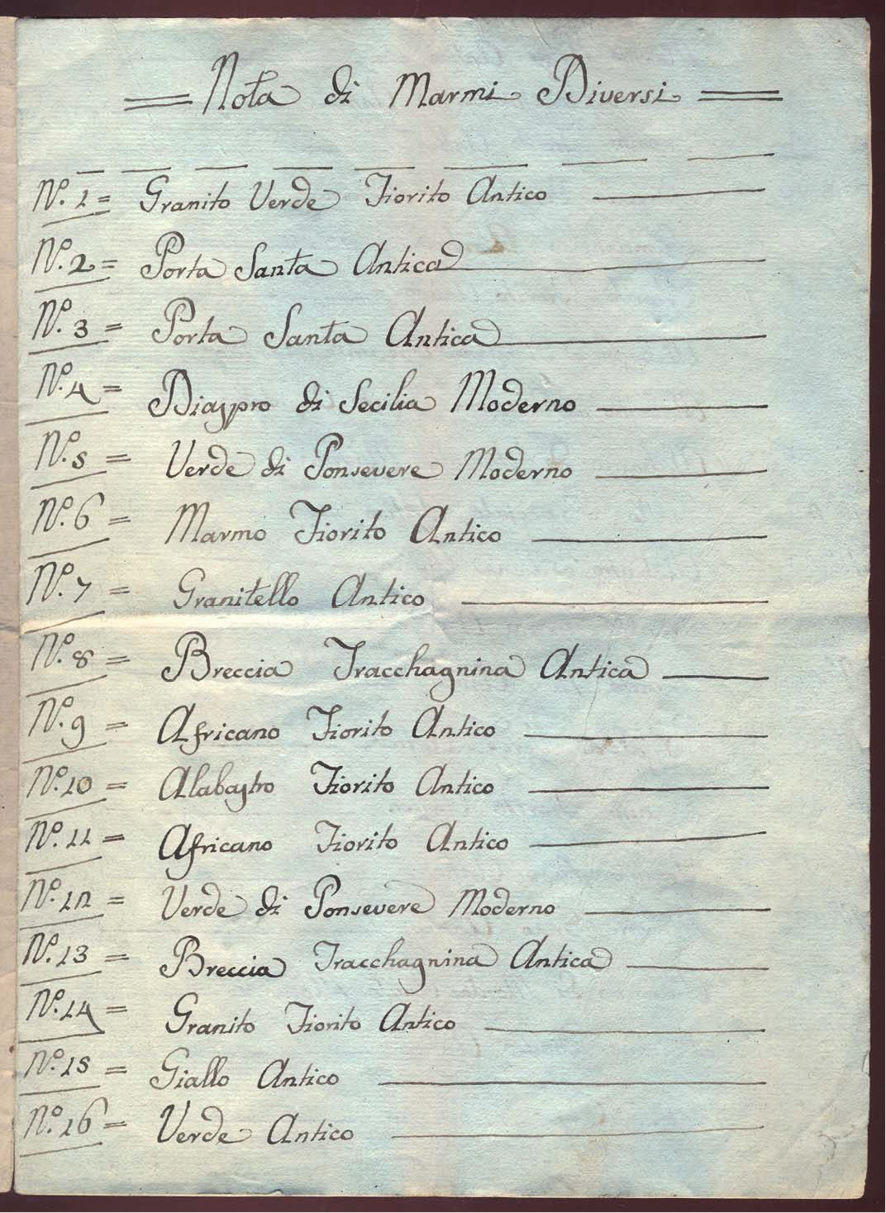 Nota di Marmi Diversi
N.º 1 = Granito Verde Fiorito Antico
N.º 2 = Porta Santa Antica
N.º 3 = Porta Santa Antica
N.º 4 = Diaspro di Secilia Moderno
N.º 5 = Verde di Ponsevere Moderno
N.º 6 = Marmo Fiorito Antico
N.º 7 = Granitello Antico
N.º 8 = Breccia Tracchagnina Antica
N.º 9 = Africano Fiorito Antico
N.º 10 = Alabastro Fiorito Antico
N.º 11 = Africano Fiorito Antico
N.º 12 = Verde di Ponsevere Moderno
N.º 13 = Breccia Tracchagnina Antica
N.º 14 = Granito Fiorito Antico
N.º 15 = Giallo Antico
N.º 16 = Verde Antico